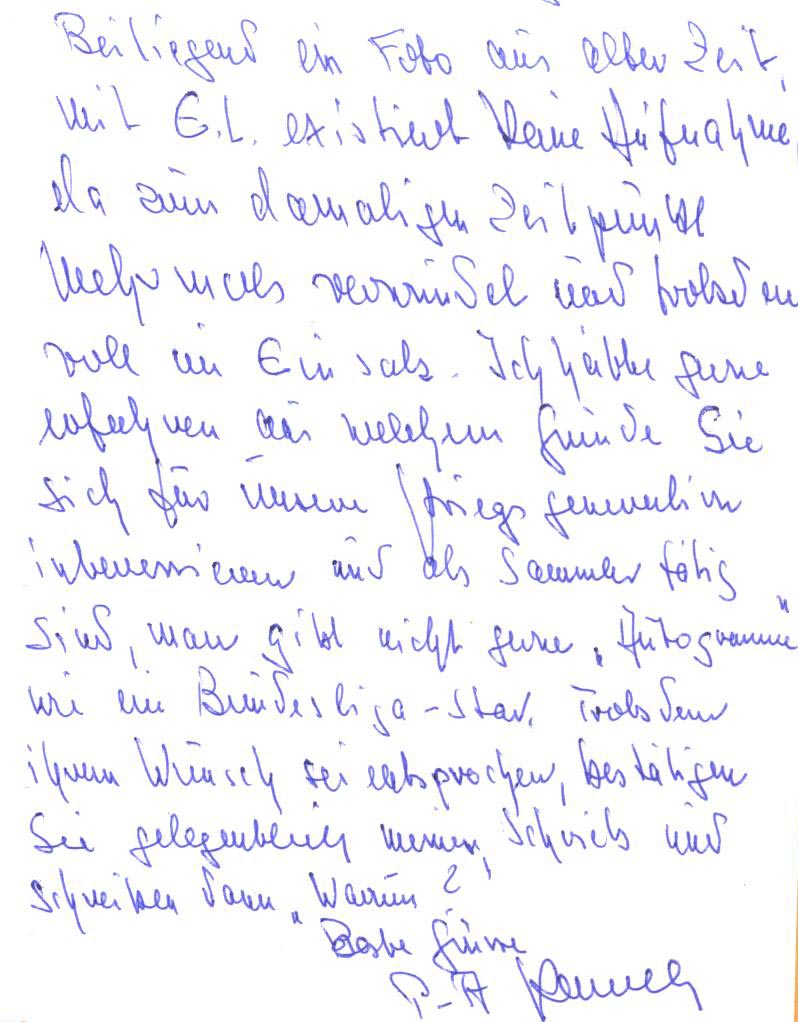 Beiliegend ein Foto aus alter Zeit,
mit E.L. existiert keine Aufnahme,
da zum damaligen Zeitpunkt
mehrmals verwundet und trotzdem
voll im Einsatz. Ich hätte gerne
erfahren aus welchem Grunde Sie
sich für unsere Kriegsgeneration
interessieren und als Sammler tätig
sind, man gibt nicht gerne „Autogramme"
wie ein Bundesliga-Star. Trotzdem
ihrem Wunsch sei entsprochen, bestätigen
Sie gelegentlich meinen Schrieb und
schreiben dann „Warum?"
Beste Grüsse
P-A